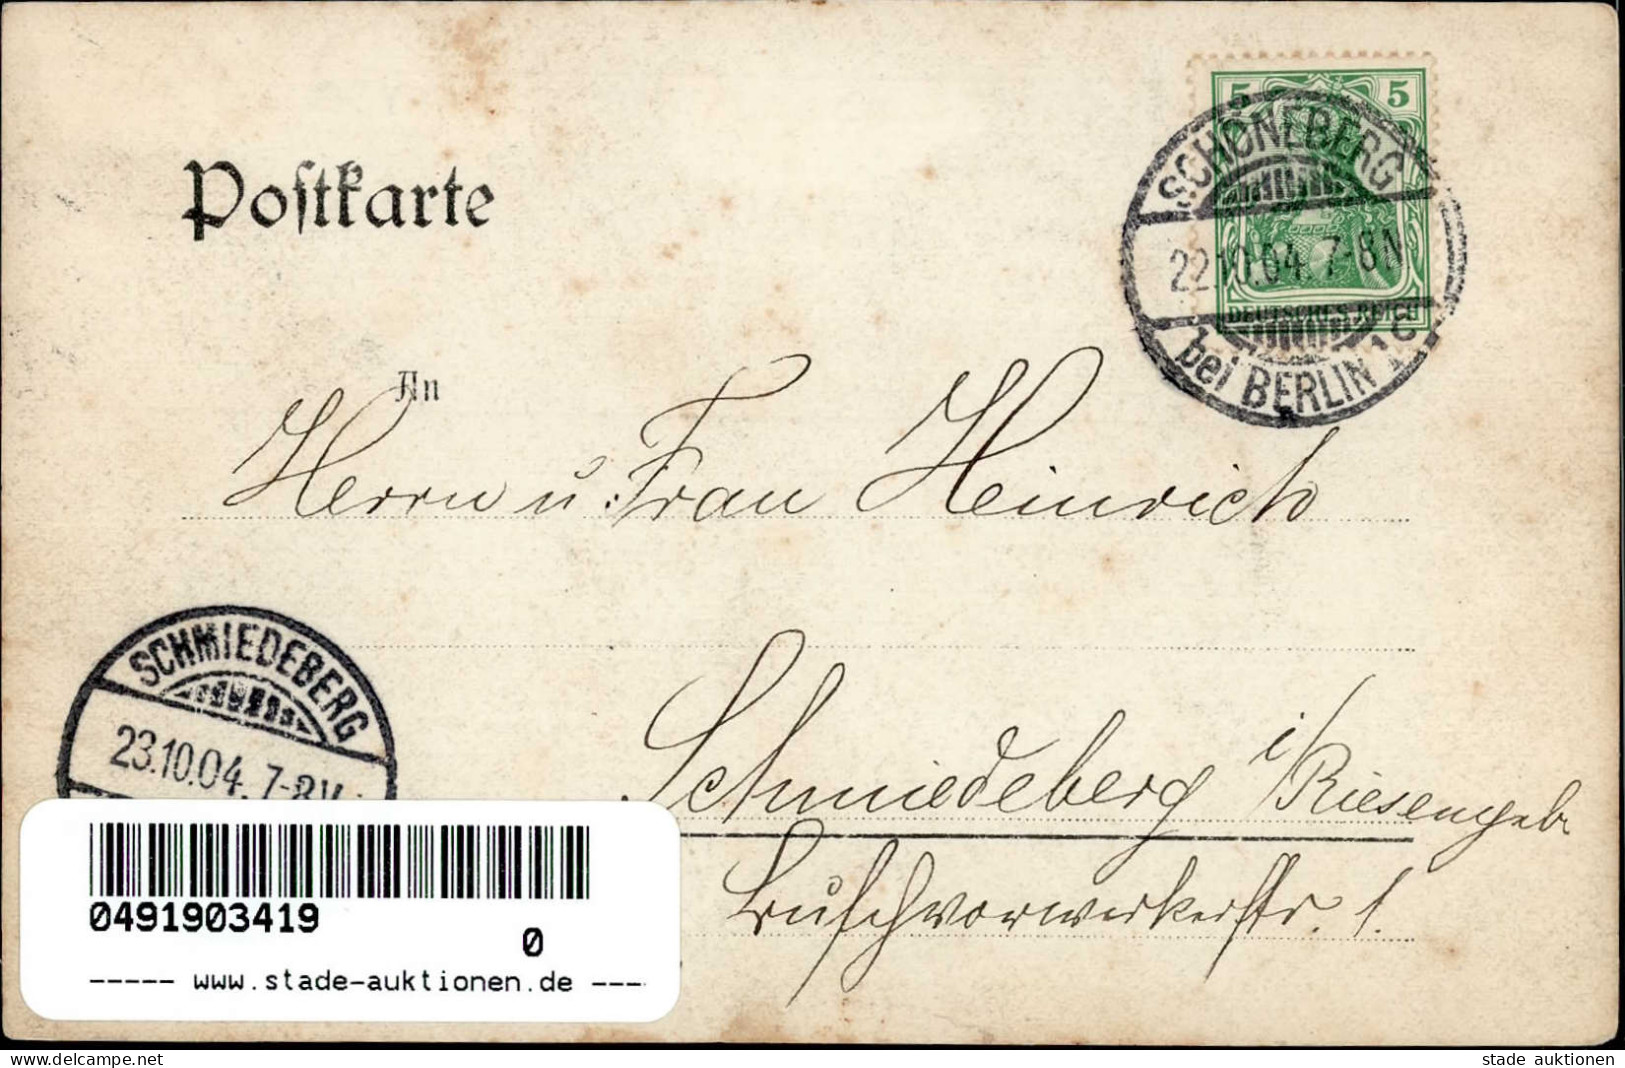 Postkarte
5 5
SCHÖNEBERG
22.10.04. 7-8N
DEUTSCHES REICH
bei BERLIN 1
An
Herrn u. Frau Heinrich
SCHMIEDEBERG
23.10.04. 7-8V.
Schmiedeberg i/Riesengeb
1.
0491903419
0
----- www.stade-auktionen.de ---
delcampe.net
stade auktionen